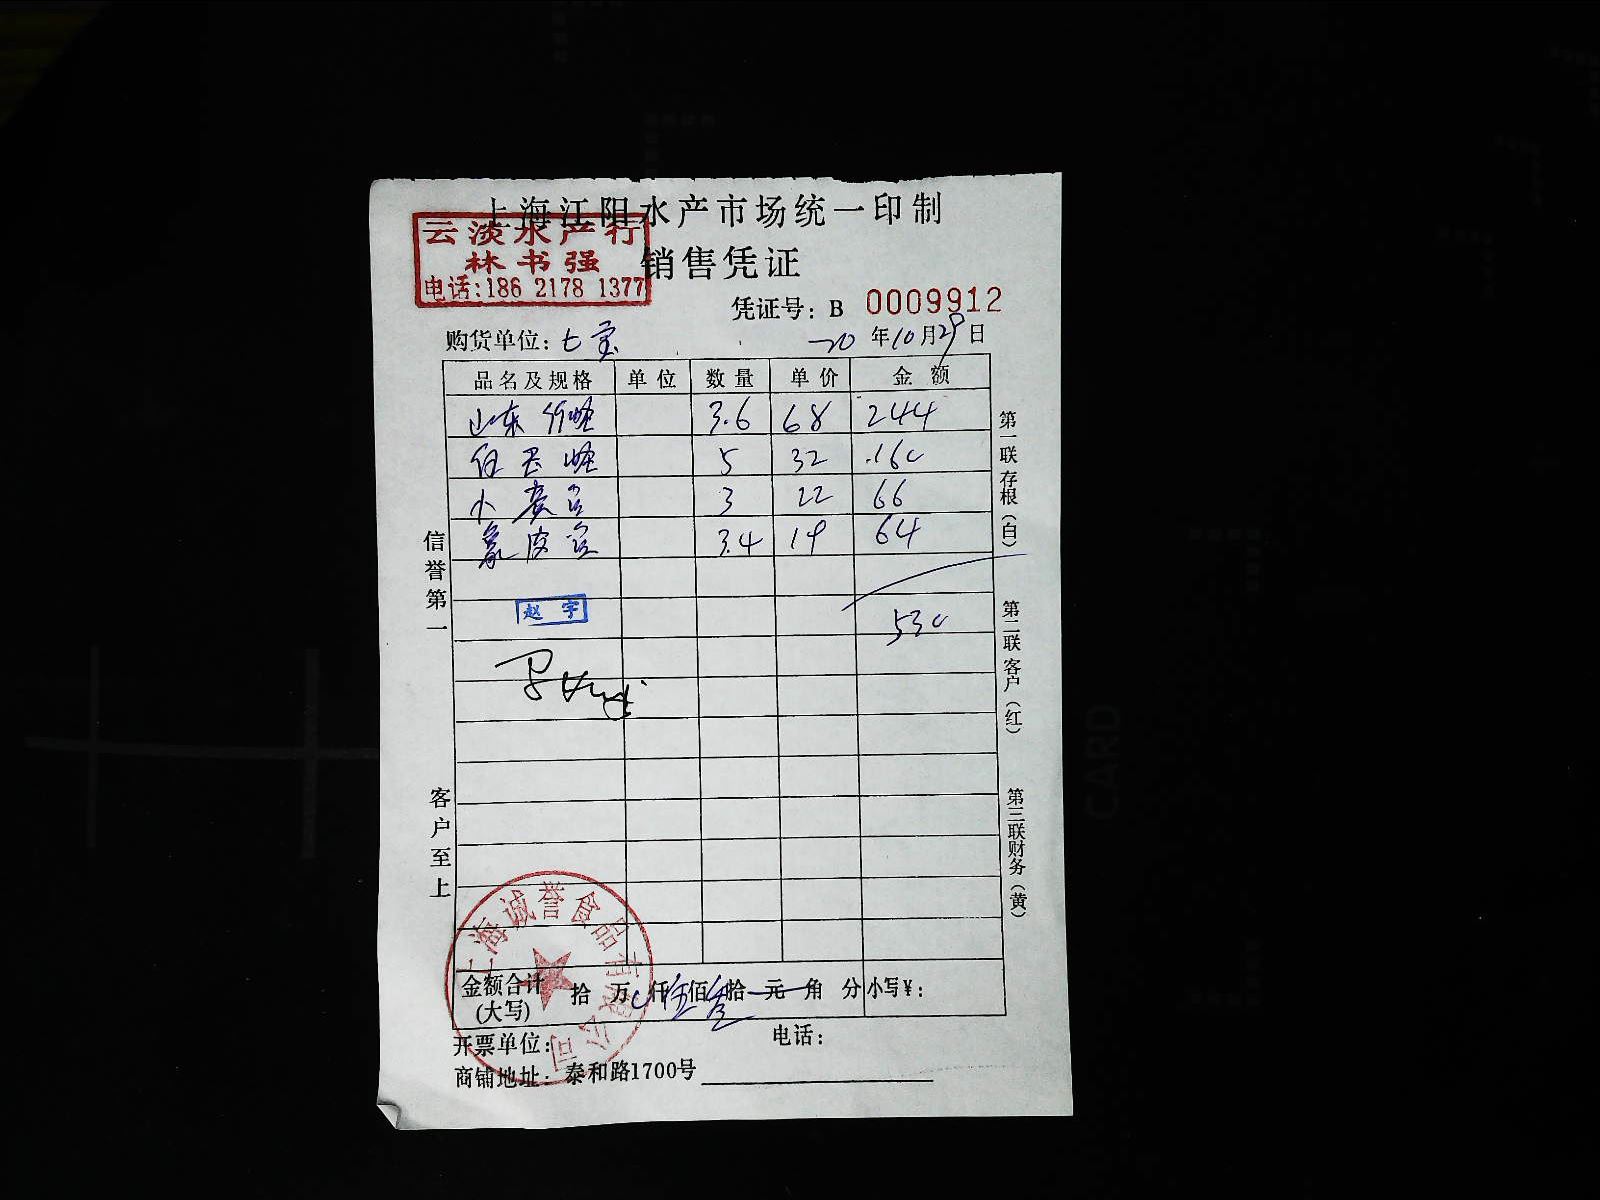 上海江阳水产市场统一印制
云淡水产行
林书强
电话:186 2178 1377
销售凭证
凭证号: B 0009912
购货单位: 七宝 20年10月29日
品名及规格 单位 数量 单价 金额
山东 3.6 68 244
5 32 160
小 3 22 66
象皮 3.4 19 64
赵宇
530
信誉第一
客户至上
第一联存根(白)
第二联客户(红)
第三联财务(黄)
上海诚誉食品有限公司
金额合计(大写) 拾 万 仟伍佰叁拾 元 角 分 小写¥:
开票单位: 电话:
商铺地址: 泰和路1700号